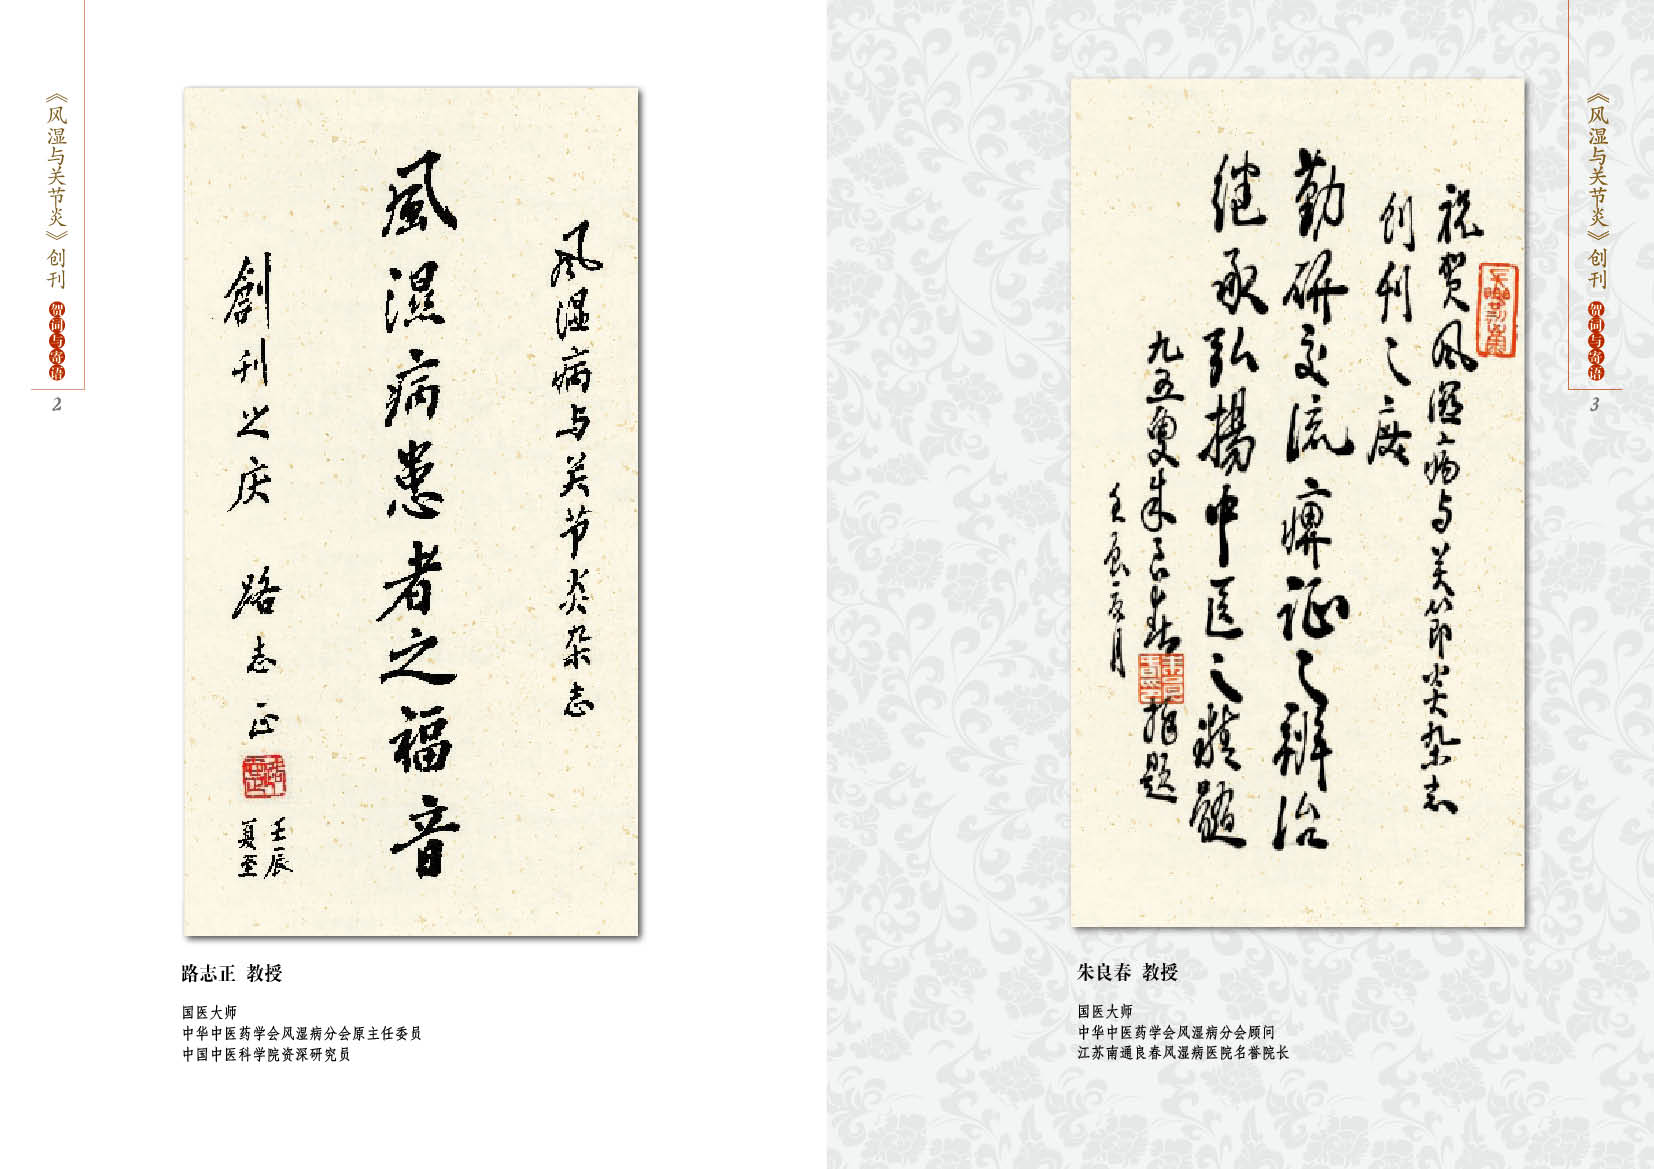 《风湿与关节炎》创刊
贺词与寄语
2
风湿病与关节炎杂志
風濕病患者之福音
創刊之庆 路志正
壬辰
夏至
路志正 教授
国医大师
中华中医药学会风湿病分会原主任委员
中国中医科学院资深研究员
《风湿与关节炎》创刊
贺词与寄语
3
祝贺风濕病与关節炎杂志
创刊之庆
勤研交流痹证之辨治
继承弘揚中医之精髓
九五叟朱良春拙题
壬辰夏月
朱良春 教授
国医大师
中华中医药学会风湿病分会顾问
江苏南通良春风湿病医院名誉院长